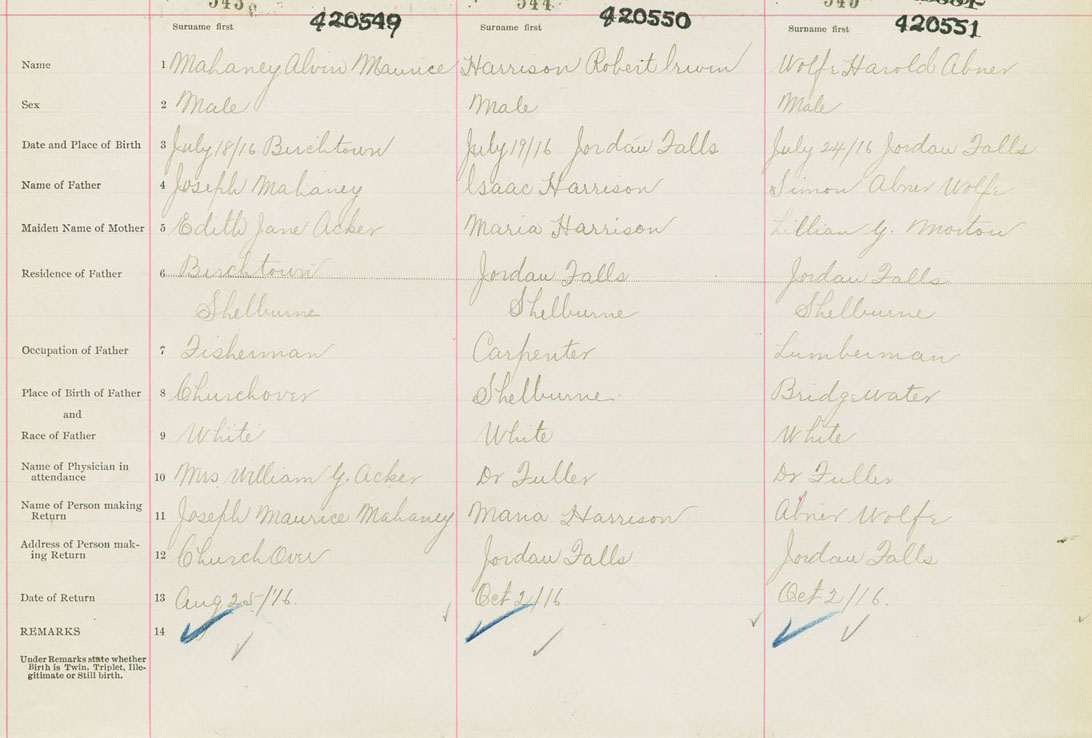 543 544 545
420549 420550 420551
Surname first Surname first Surname first
Name 1 Mahaney Alvin Maurice Harrison Robert Irwin Wolfe Harold Abner
Sex 2 Male Male Male
Date and Place of Birth 3 July 18/16 Birchtown July 19/16 Jordan Falls July 24/16 Jordan Falls
Name of Father 4 Joseph Mahaney Isaac Harrison Simon Abner Wolfe
Maiden Name of Mother 5 Edith Jane Acker Maria Harrison Lillian G. Morton
Residence of Father 6 Birchtown Jordan Falls Jordan Falls
Shelburne Shelburne Shelburne
Occupation of Father 7 Fisherman Carpenter Lumberman
Place of Birth of Father 8 Churchover Shelburne. Bridgewater
and
Race of Father 9 White White White
Name of Physician in
attendance 10 Mrs William G. Acker Dr Fuller Dr Fuller
Name of Person making
Return 11 Joseph Maurice Mahaney Maria Harrison Abner Wolfe
Address of Person mak-
ing Return 12 Church Over Jordan Falls Jordan Falls
Date of Return 13 Aug 25/16. Oct 2/16. Oct 2/16.
REMARKS 14
Under Remarks state whether
Birth is Twin, Triplet, Ille-
gitimate or Still birth.